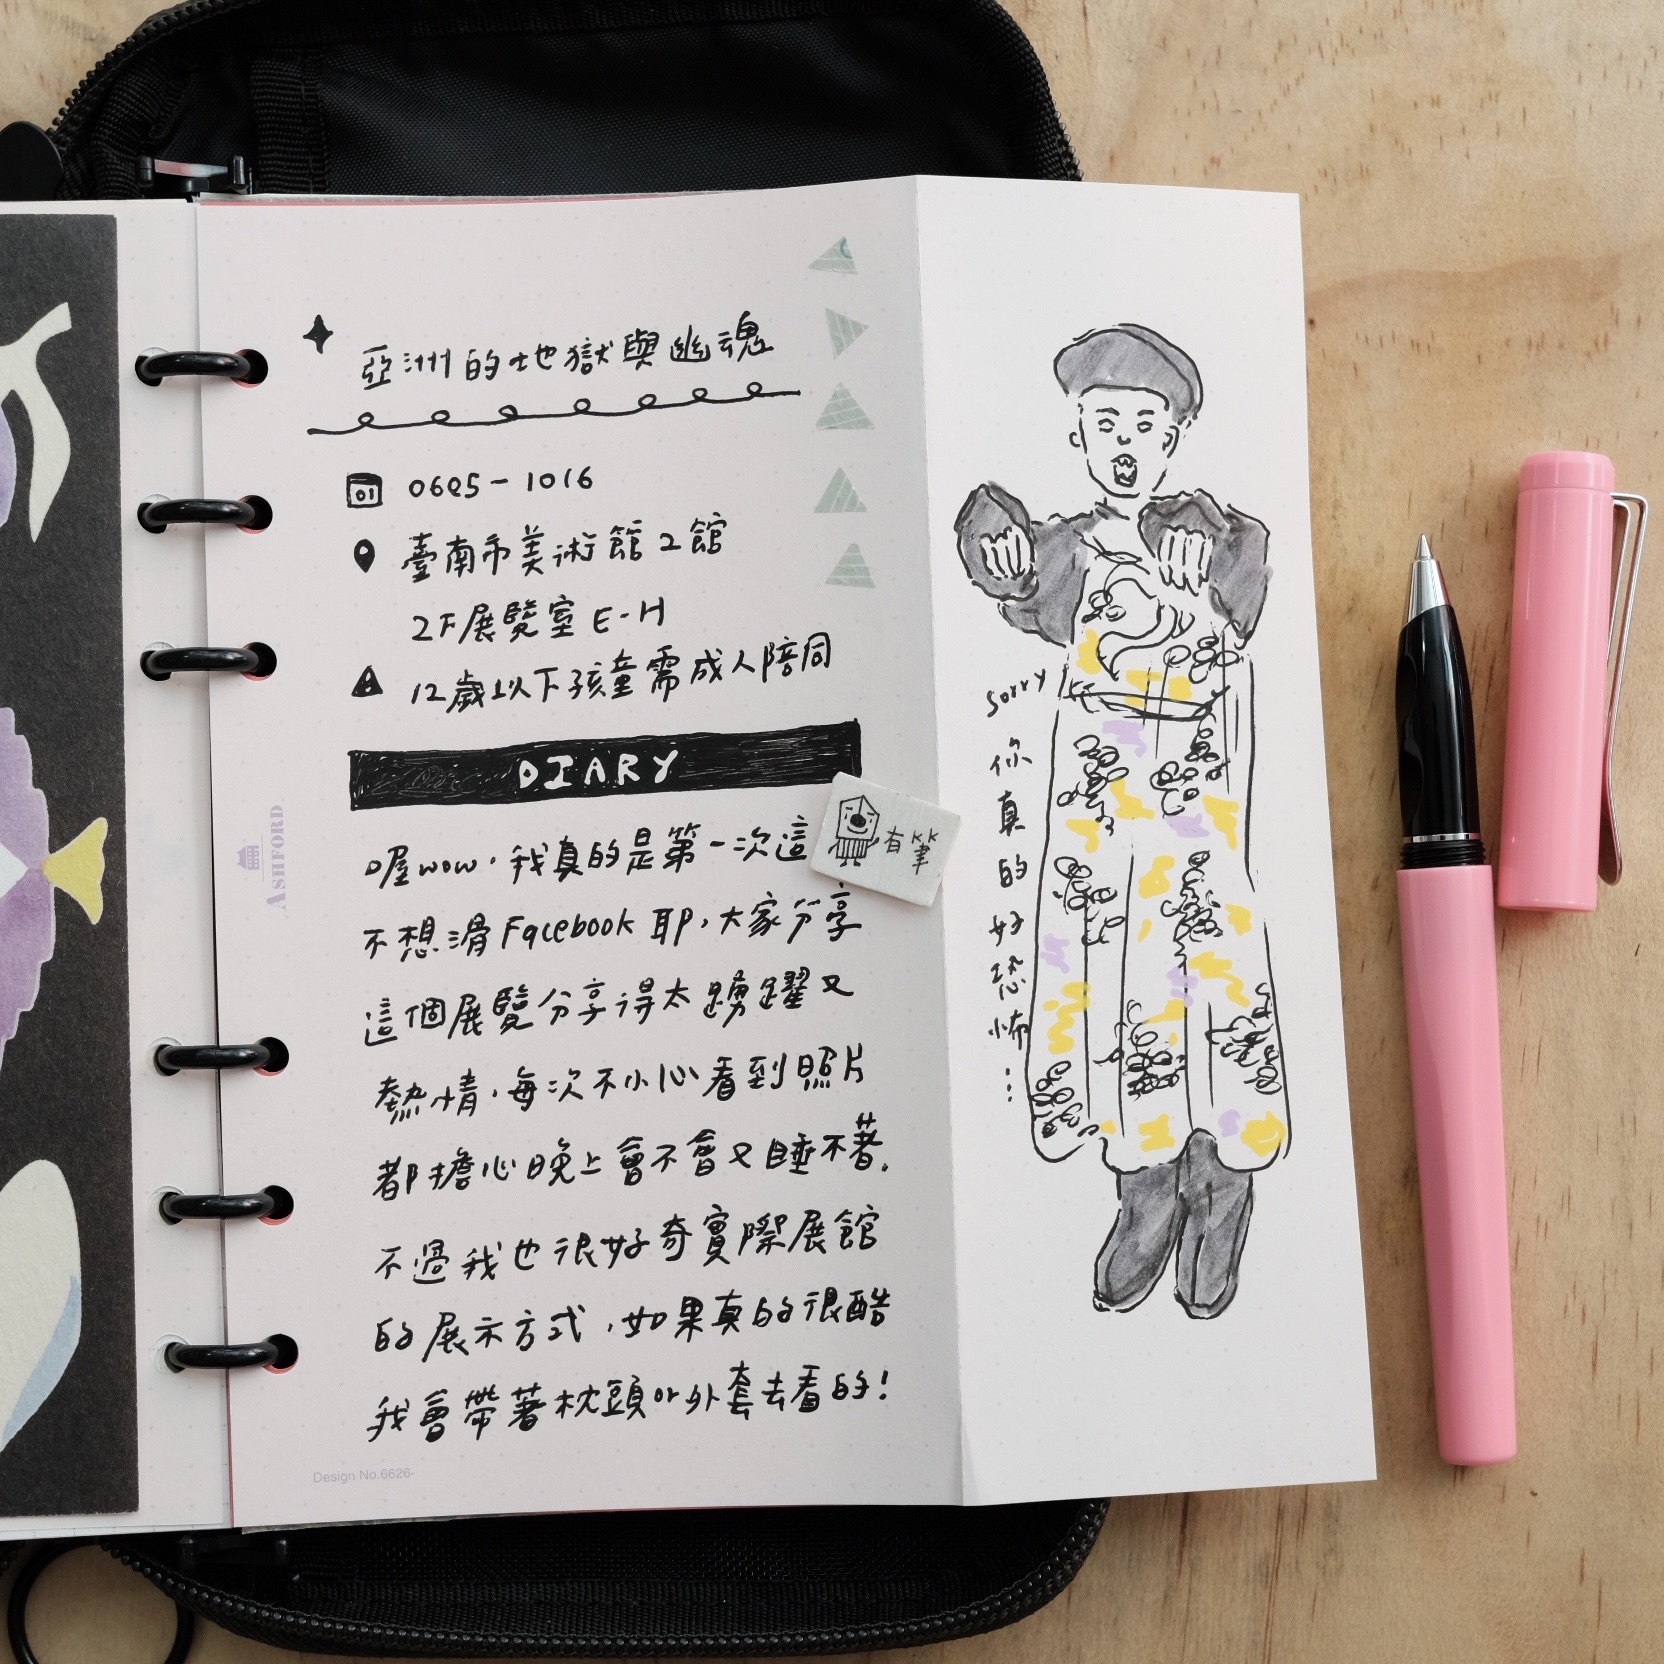 亞洲的地獄與幽魂
01 0625-1016
臺南市美術館2館
2F展覽室 E-H
12歲以下孩童需成人陪同
DIARY
喔wow，我真的是第一次這
不想滑 Facebook 耶，大家分享
這個展覽分享得太踴躍又
熱情，每次不小心看到照片
都擔心晚上會不會又睡不著。
不過我也很好奇實際展館
的展示方式，如果真的很酷
我會帶著枕頭or外套去看的！
有筆
ASHFORD
Design No.6626-
sorry
你
真
的
好
恐
怖
…